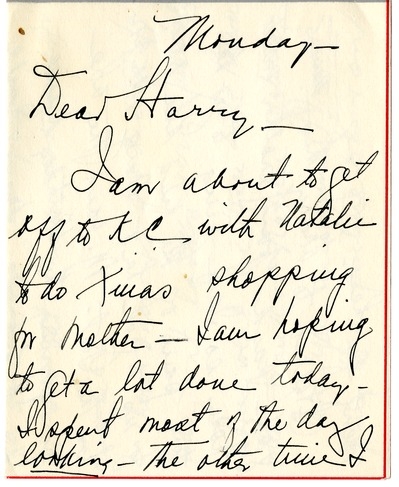 Monday—
Dear Harry—
I am about to get
off to K.C. with Natalie
to do Xmas shopping
for Mother — I am hoping
to get a lot done today—
I spent most of the day
looking — the other time I